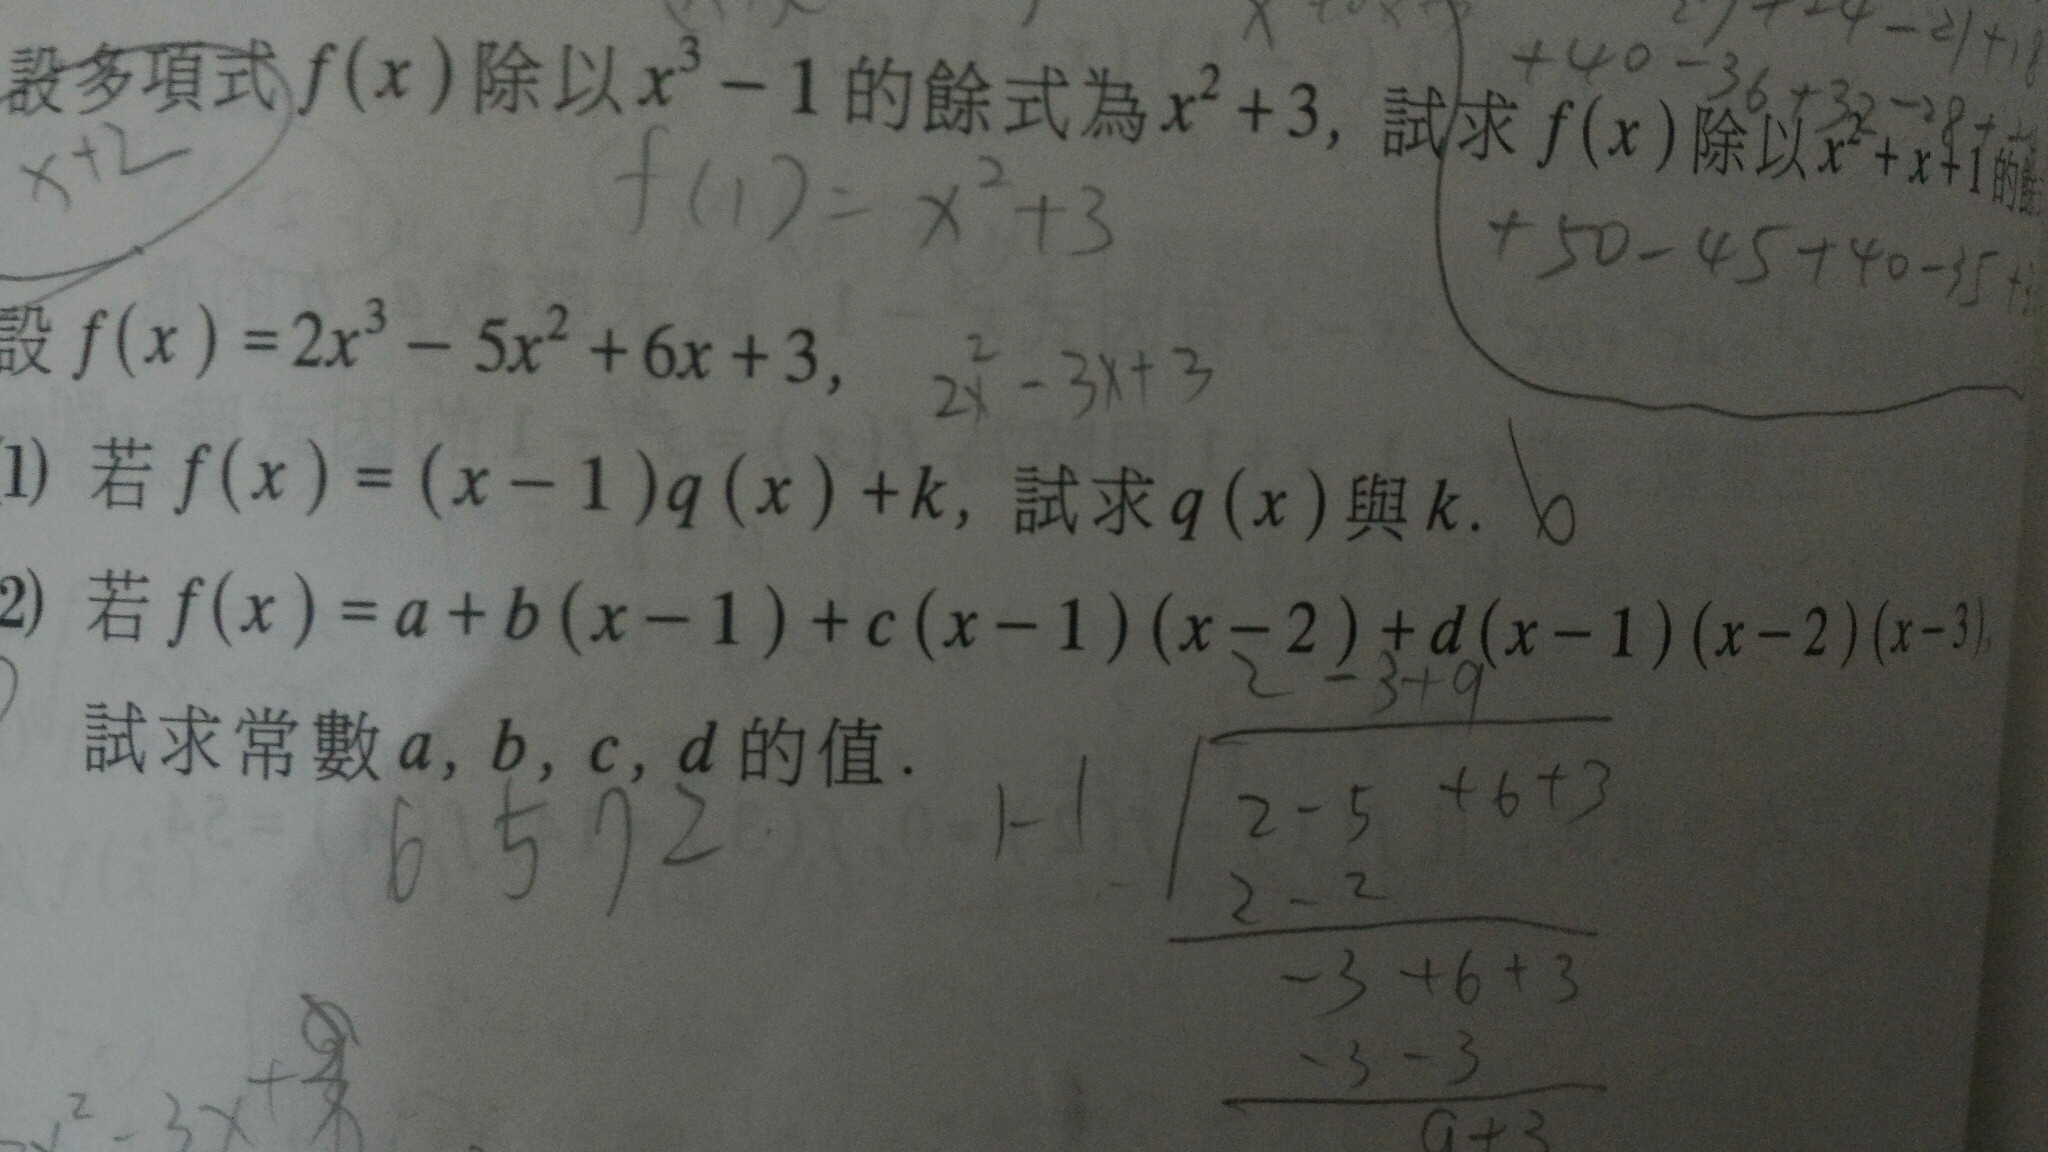 設多項式 f(x) 除以 x³ − 1 的餘式為 x² + 3, 試求 f(x) 除以 x² + x + 1 的餘
+40 −36 +32 −28 +
x+2
f(1) = x² + 3
+50 − 45 + 40 − 35 +
設 f(x) = 2x³ − 5x² + 6x + 3,
2x² − 3x + 3
1) 若 f(x) = (x − 1)q(x) + k, 試求 q(x) 與 k.
6
2) 若 f(x) = a + b(x − 1) + c(x − 1)(x − 2) + d(x − 1)(x − 2)(x − 3),
試求常數 a, b, c, d 的值.
6 5 7 2
2 − 3 + 9
1−1
2 − 5 + 6 + 3
2 − 2
−3 + 6 + 3
−3 − 3
9 + 3
x² − 3x +